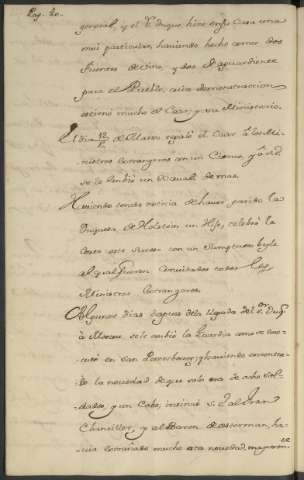 Pag. 20.
general, y el S.r Duque hizo en su Casa otra
mui particular, haviendo hecho correr dos
fuentes de vino, y dos de aguardiente
para el Pueblo, cuia demonstracion
estimó mucho el Czar, y su Ministerio.
El dia 12 de Marzo regaló el Czar a los Mi-
nistros extrangeros con un Ciervo, y a
se le embió un de mar.
Haviendo tenido noticia de haver parido la
Duquesa de Holstein un Hijo, celebró la
Corte este suceso con un sumptuoso bayle
al qual fueron convidados todos los
Ministros extrangeros.
Algunos dias despues de la llegada del S.r Duq.e
à Moscou, se le embió la Guardia como se exe-
cutó en San Petersbourg, y haviendo encontra-
do la novedad de que solo era de ocho Sol-
dados, y un Cabo, insinuó S. E. al Gran
Chanciller, y al Baron de Osterman, ha-
via extrañado mucho esta novedad, mayorm.te